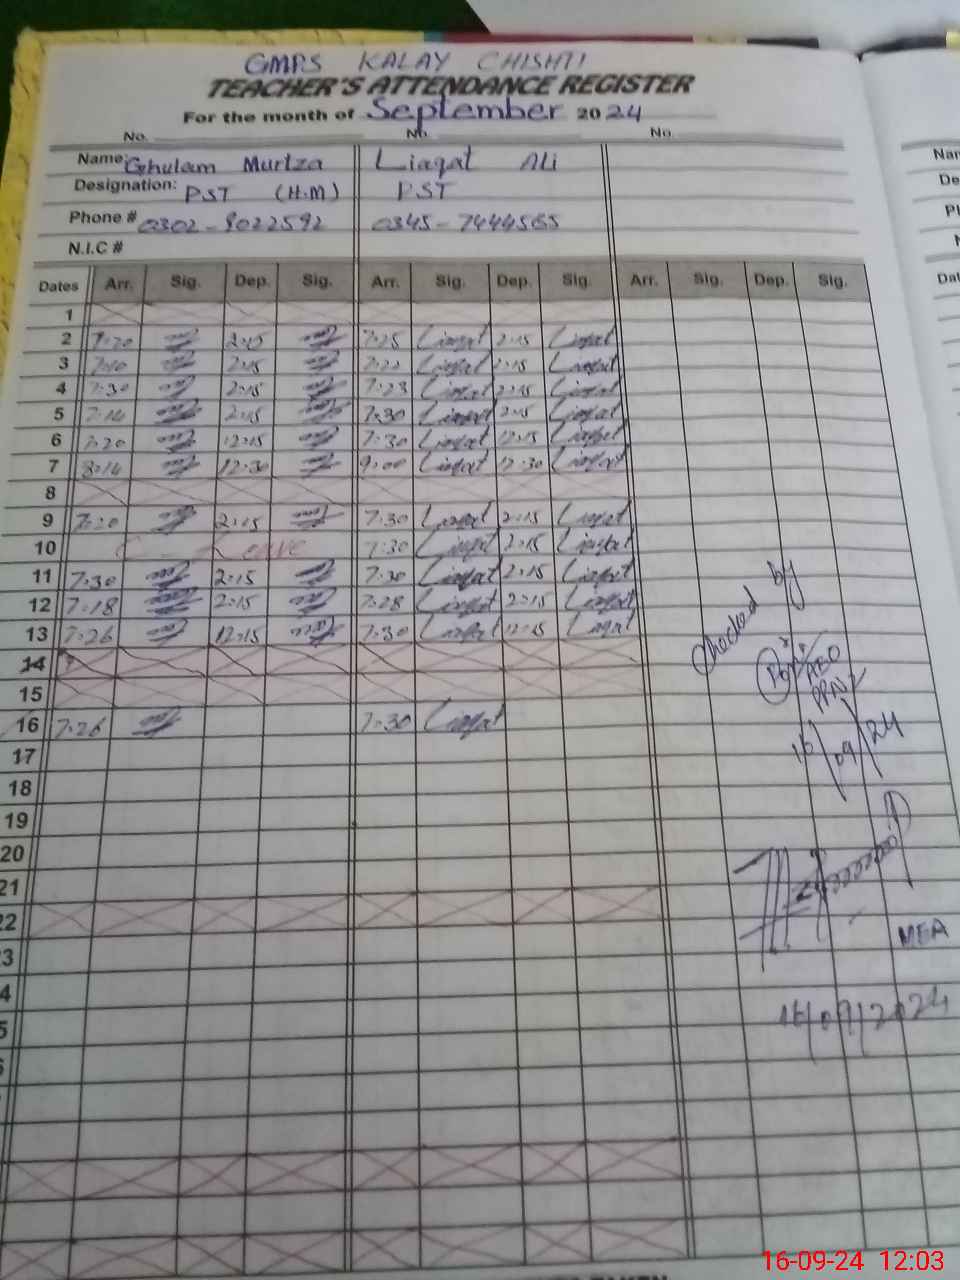 GMPS KALAY CHISHTI
TEACHER'S ATTENDANCE REGISTER
For the month of September 2024
No. No. No.
Name: Ghulam Murtza Liaqat Ali
Designation: PST (H.M) PST
Phone # 0302-9022592 0345-7444565
N.I.C #
Dates Arr. Sig. Dep. Sig. Arr. Sig. Dep. Sig. Arr. Sig. Dep. Sig.
1
2 7:20 2:15 7:25 Liaqat 2:15 Liaqat
3 2:15 7:22 Liaqat 2:15 Liaqat
4 7:30 2:15 7:23 Liaqat 2:15 Liaqat
5 7:14 2:15 7:30 Liaqat 2:15 Liaqat
6 7:20 12:15 7:30 Liaqat 12:15 Liaqat
7 8:14 12:30 9:00 Liaqat 12:30 Liaqat
8
9 7:20 2:15 7:30 Liaqat 2:15 Liaqat
10 Leave 7:30 Liaqat 2:15 Liaqat
11 7:30 2:15 7:30 Liaqat 2:15 Liaqat
12 7:18 2:15 7:28 Liaqat 2:15 Liaqat
13 7:26 12:15 7:30 Liaqat 12:15 Liaqat
14
15
16 7:26 7:30 Liaqat
17
18
19
20
21
22
Checked by
AEO
16/09/24
MEA
16/09/2024
16-09-24 12:03